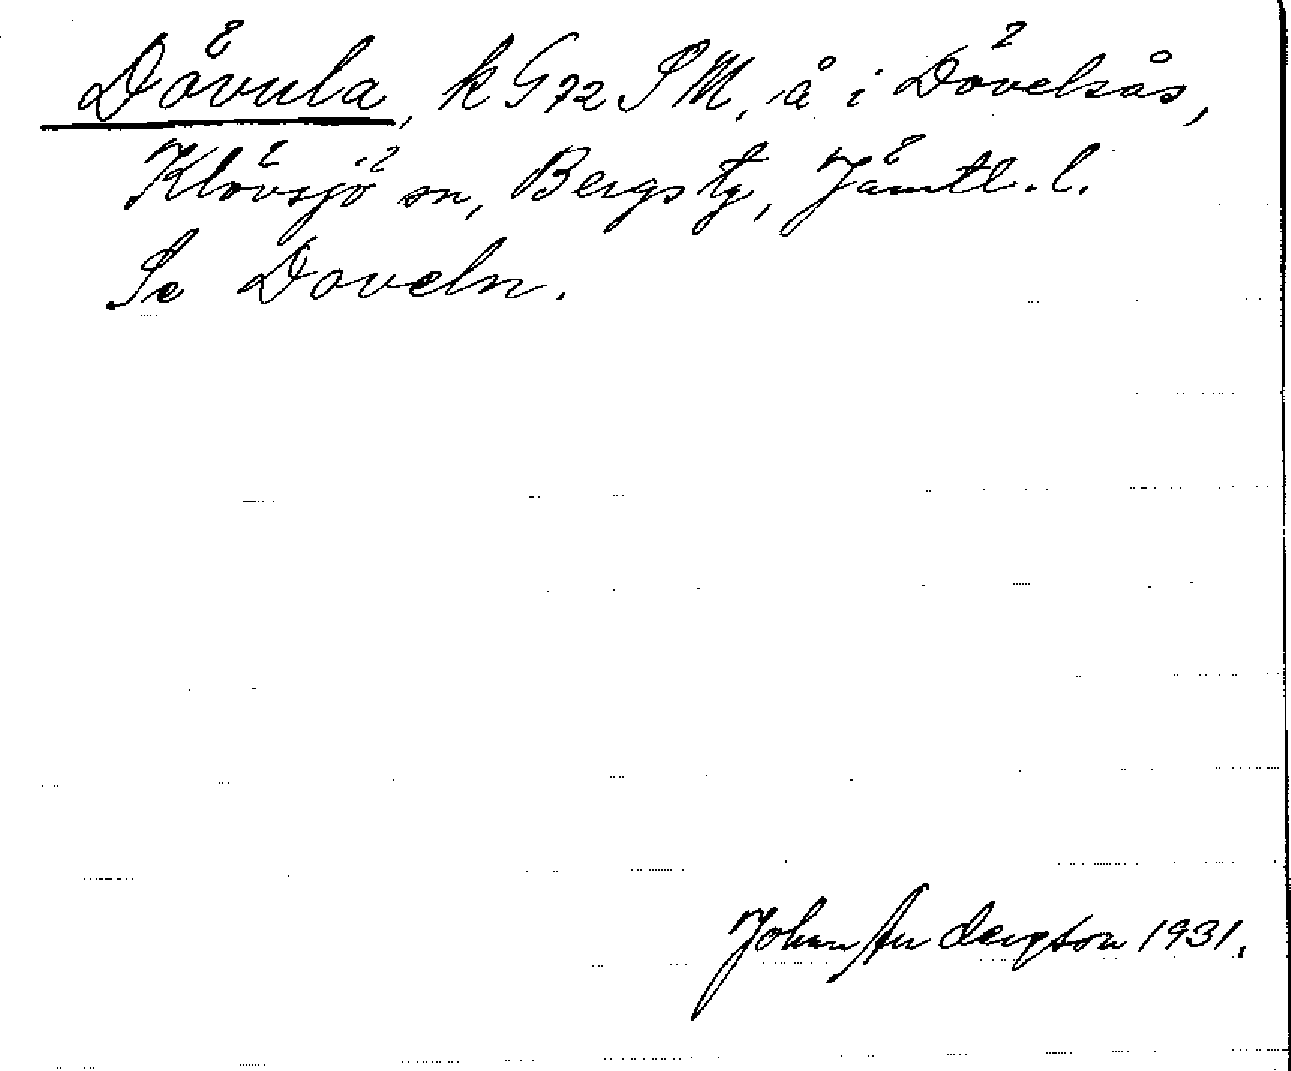 Dövula, k G 72 SM, å i Dövelsås,
Klövsjö sn, Bergs tg, Jämtl. l.
Se Doveln.
Johan Andersson 1931.